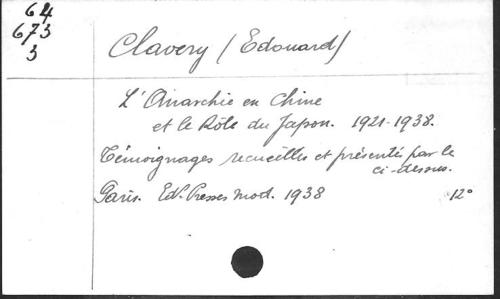 64
673
3
Clavery (Edouard)
L'Anarchie en Chine
et le Rôle du Japon. 1921-1938.
Témoignages recueillis et présentés par le
ci-dessus.
Paris. Ed. Presses Mod. 1938 12°